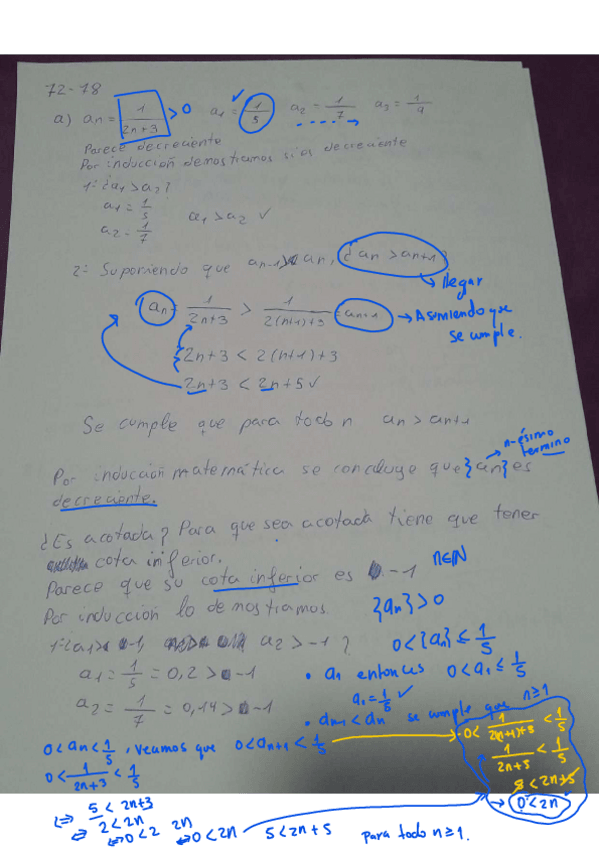 72-78
a) an = 1/(2n+3) > 0 a1 = 1/5 ✓ a2 = 1/7 a3 = 1/9
Parece decreciente
Por inducción demostramos si es decreciente
1: ¿a1 > a2?
a1 = 1/5
a1 > a2 ✓
a2 = 1/7
2: Suponiendo que an-1 > an, ¿an > an+1?
llegar
an = 1/(2n+3) > 1/(2(n+1)+3) = an+1 → Asumiendo que
se cumple.
2n+3 < 2(n+1)+3
2n+3 < 2n+5 ✓
Se cumple que para todo n an > an+1
n-ésimo
término
Por inducción matemática se concluye que {an} es
decreciente.
¿Es acotada? Para que sea acotada tiene que tener
cota inferior.
Parece que su cota inferior es -1 n∈ℕ
Por inducción lo demostramos {an} > 0
1: ¿a1 > -1, a2 > -1? 0 < {an} ≤ 1/5
a1 = 1/5 = 0,2 > -1 • a1 entonces 0 < a1 ≤ 1/5
a1 = 1/5 ✓ n≥1
a2 = 1/7 = 0,14 > -1 • an-1 < an se cumple que
0 < an < 1/5, veamos que 0 < an+1 < 1/5 → 0 < 1/(2(n+1)+3) < 1/5
0 < 1/(2n+3) < 1/5
1/(2n+5) < 1/5
5 < 2n+5
⇔ 5 < 2n+3
→ 0 < 2n
⇔ 2 < 2n
⇔ 0 < 2 2n ⇔ 0 < 2n 5 < 2n+5 para todo n≥1.